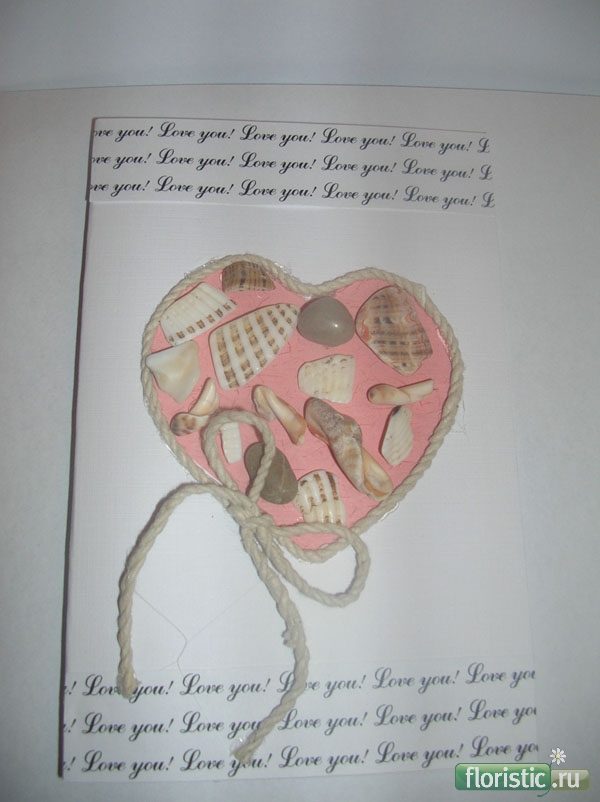 ove you! Love you! Love you! Love you! Love you! L
ove you! Love you! Love you! Love you! Love you! L
ove you! Love you! Love you! Love you! Love you! L
! Love you! Love you! Love you! Love you! Love you
! Love you! Love you! Love you! Love you! Love you
! Love you! Love you! Love you! Love you! Love you
floristic.ru